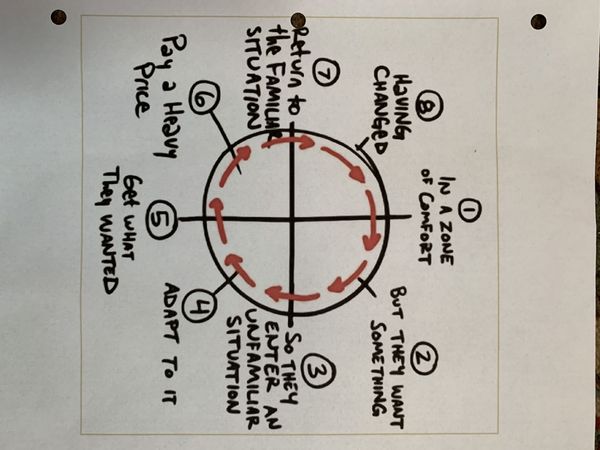 ①
IN A ZONE
OF COMFORT
②
BUT THEY WANT
SOMETHING
③
SO THEY
ENTER AN
UNFAMILIAR
SITUATION
④
ADAPT TO IT
⑤
Get WHAT
They WANTED
⑥
Pay a Heavy
Price
⑦
Return to
the FAMILIAR
SITUATION
⑧
HAVING
CHANGED